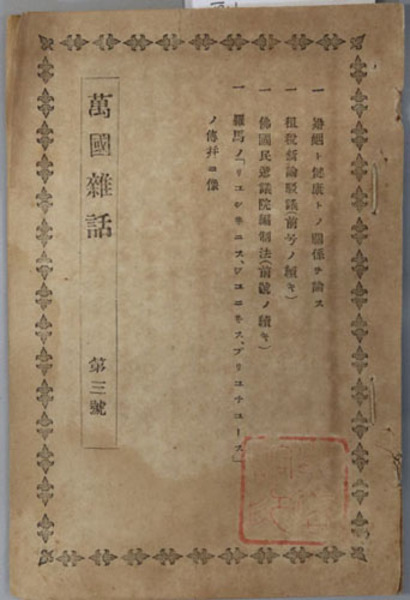 一 婚姻ト健康トノ關係ヲ論ス
一 租税新論駁議(前号ノ續キ)
一 佛國民選議院編制法(前號ノ續キ)
一 羅馬ノ「リユシホニス、ジユニホス、ブリユチユース」
ノ傳并ニ像
萬國雜話 第三號